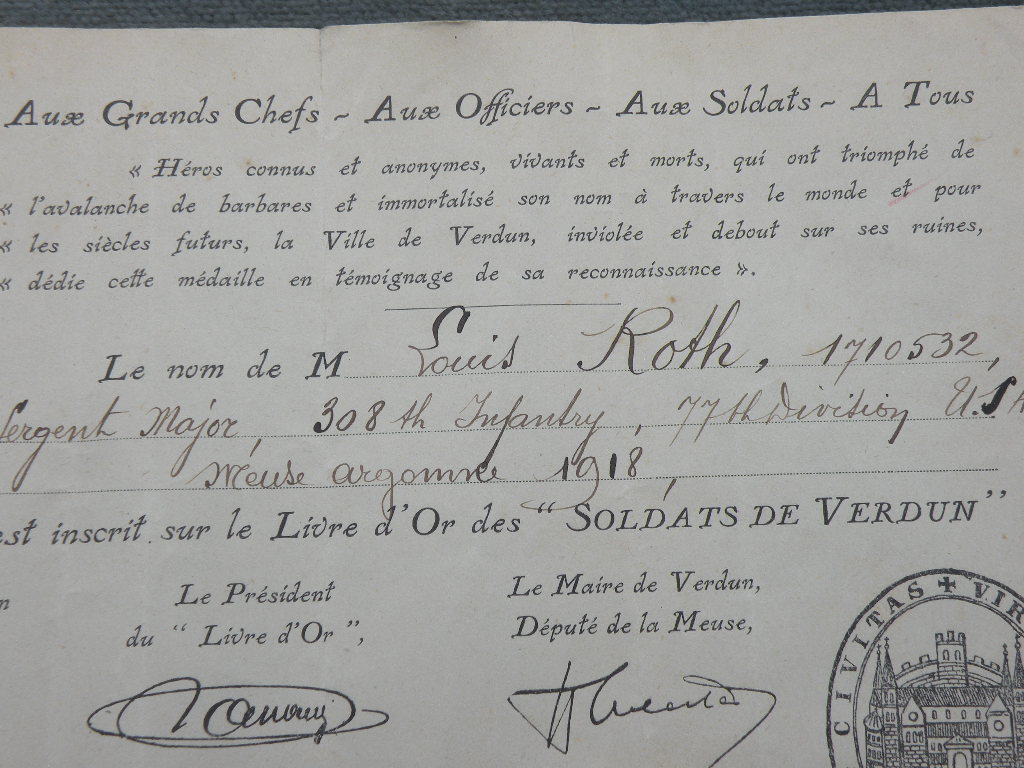 Aux Grands Chefs ~ Aux Officiers ~ Aux Soldats ~ A Tous
« Héros connus et anonymes, vivants et morts, qui ont triomphé de
« l'avalanche de barbares et immortalisé son nom à travers le monde et pour
« les siècles futurs, la Ville de Verdun, inviolée et debout sur ses ruines,
« dédie cette médaille en témoignage de sa reconnaissance ».
Le nom de M Louis Roth, 1710532,
Sergent Major, 308th Infantry, 77th Division U.S.A
Meuse argonne 1918,
est inscrit sur le Livre d'Or des "SOLDATS DE VERDUN"
Le Président
du "Livre d'Or",
Le Maire de Verdun,
Député de la Meuse,
CIVITAS ✚ VIR